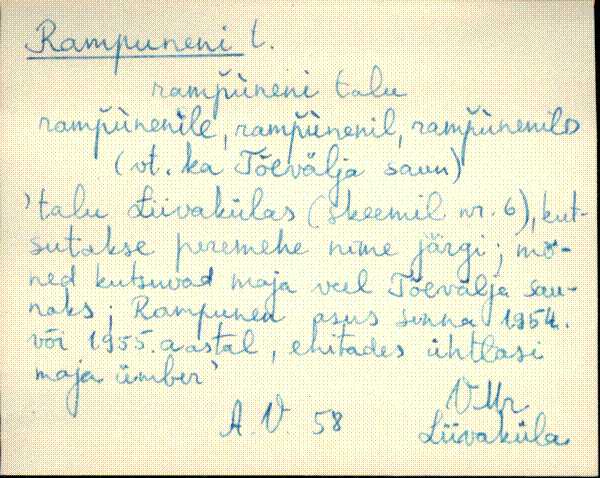 Rampuneni t.
rampùneni talu
rampùnenile, rampùnenil, rampùnenilD
(vt. ka Tõevälja saun)
'talu Liivakülas (skeemil nr. 6), kut-
sutakse peremehe nime järgi; mõ-
ned kutsuvad maja veel Tõevälja sau-
naks; Rampunen asus sinna 1954.
või 1955. aastal, ehitades ühtlasi
maja ümber'
V.Mr
A.V. 58
Liivaküla